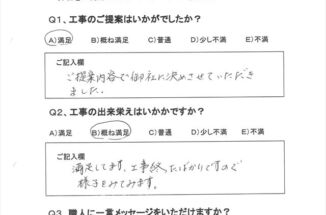 Q1、工事のご提案はいかがでしたか？
A)満足 B)概ね満足 C)普通 D)少し不満 E)不満
ご記入欄
ご提案内容で御社に決めさせていただき
ました。
Q2、工事の出来栄えはいかかですか？
A)満足 B)概ね満足 C)普通 D)少し不満 E)不満
ご記入欄
満足してます。工事終ったばかりですので
様子をみてみます。
Q3、職人に一言メッセージをいただけますか？